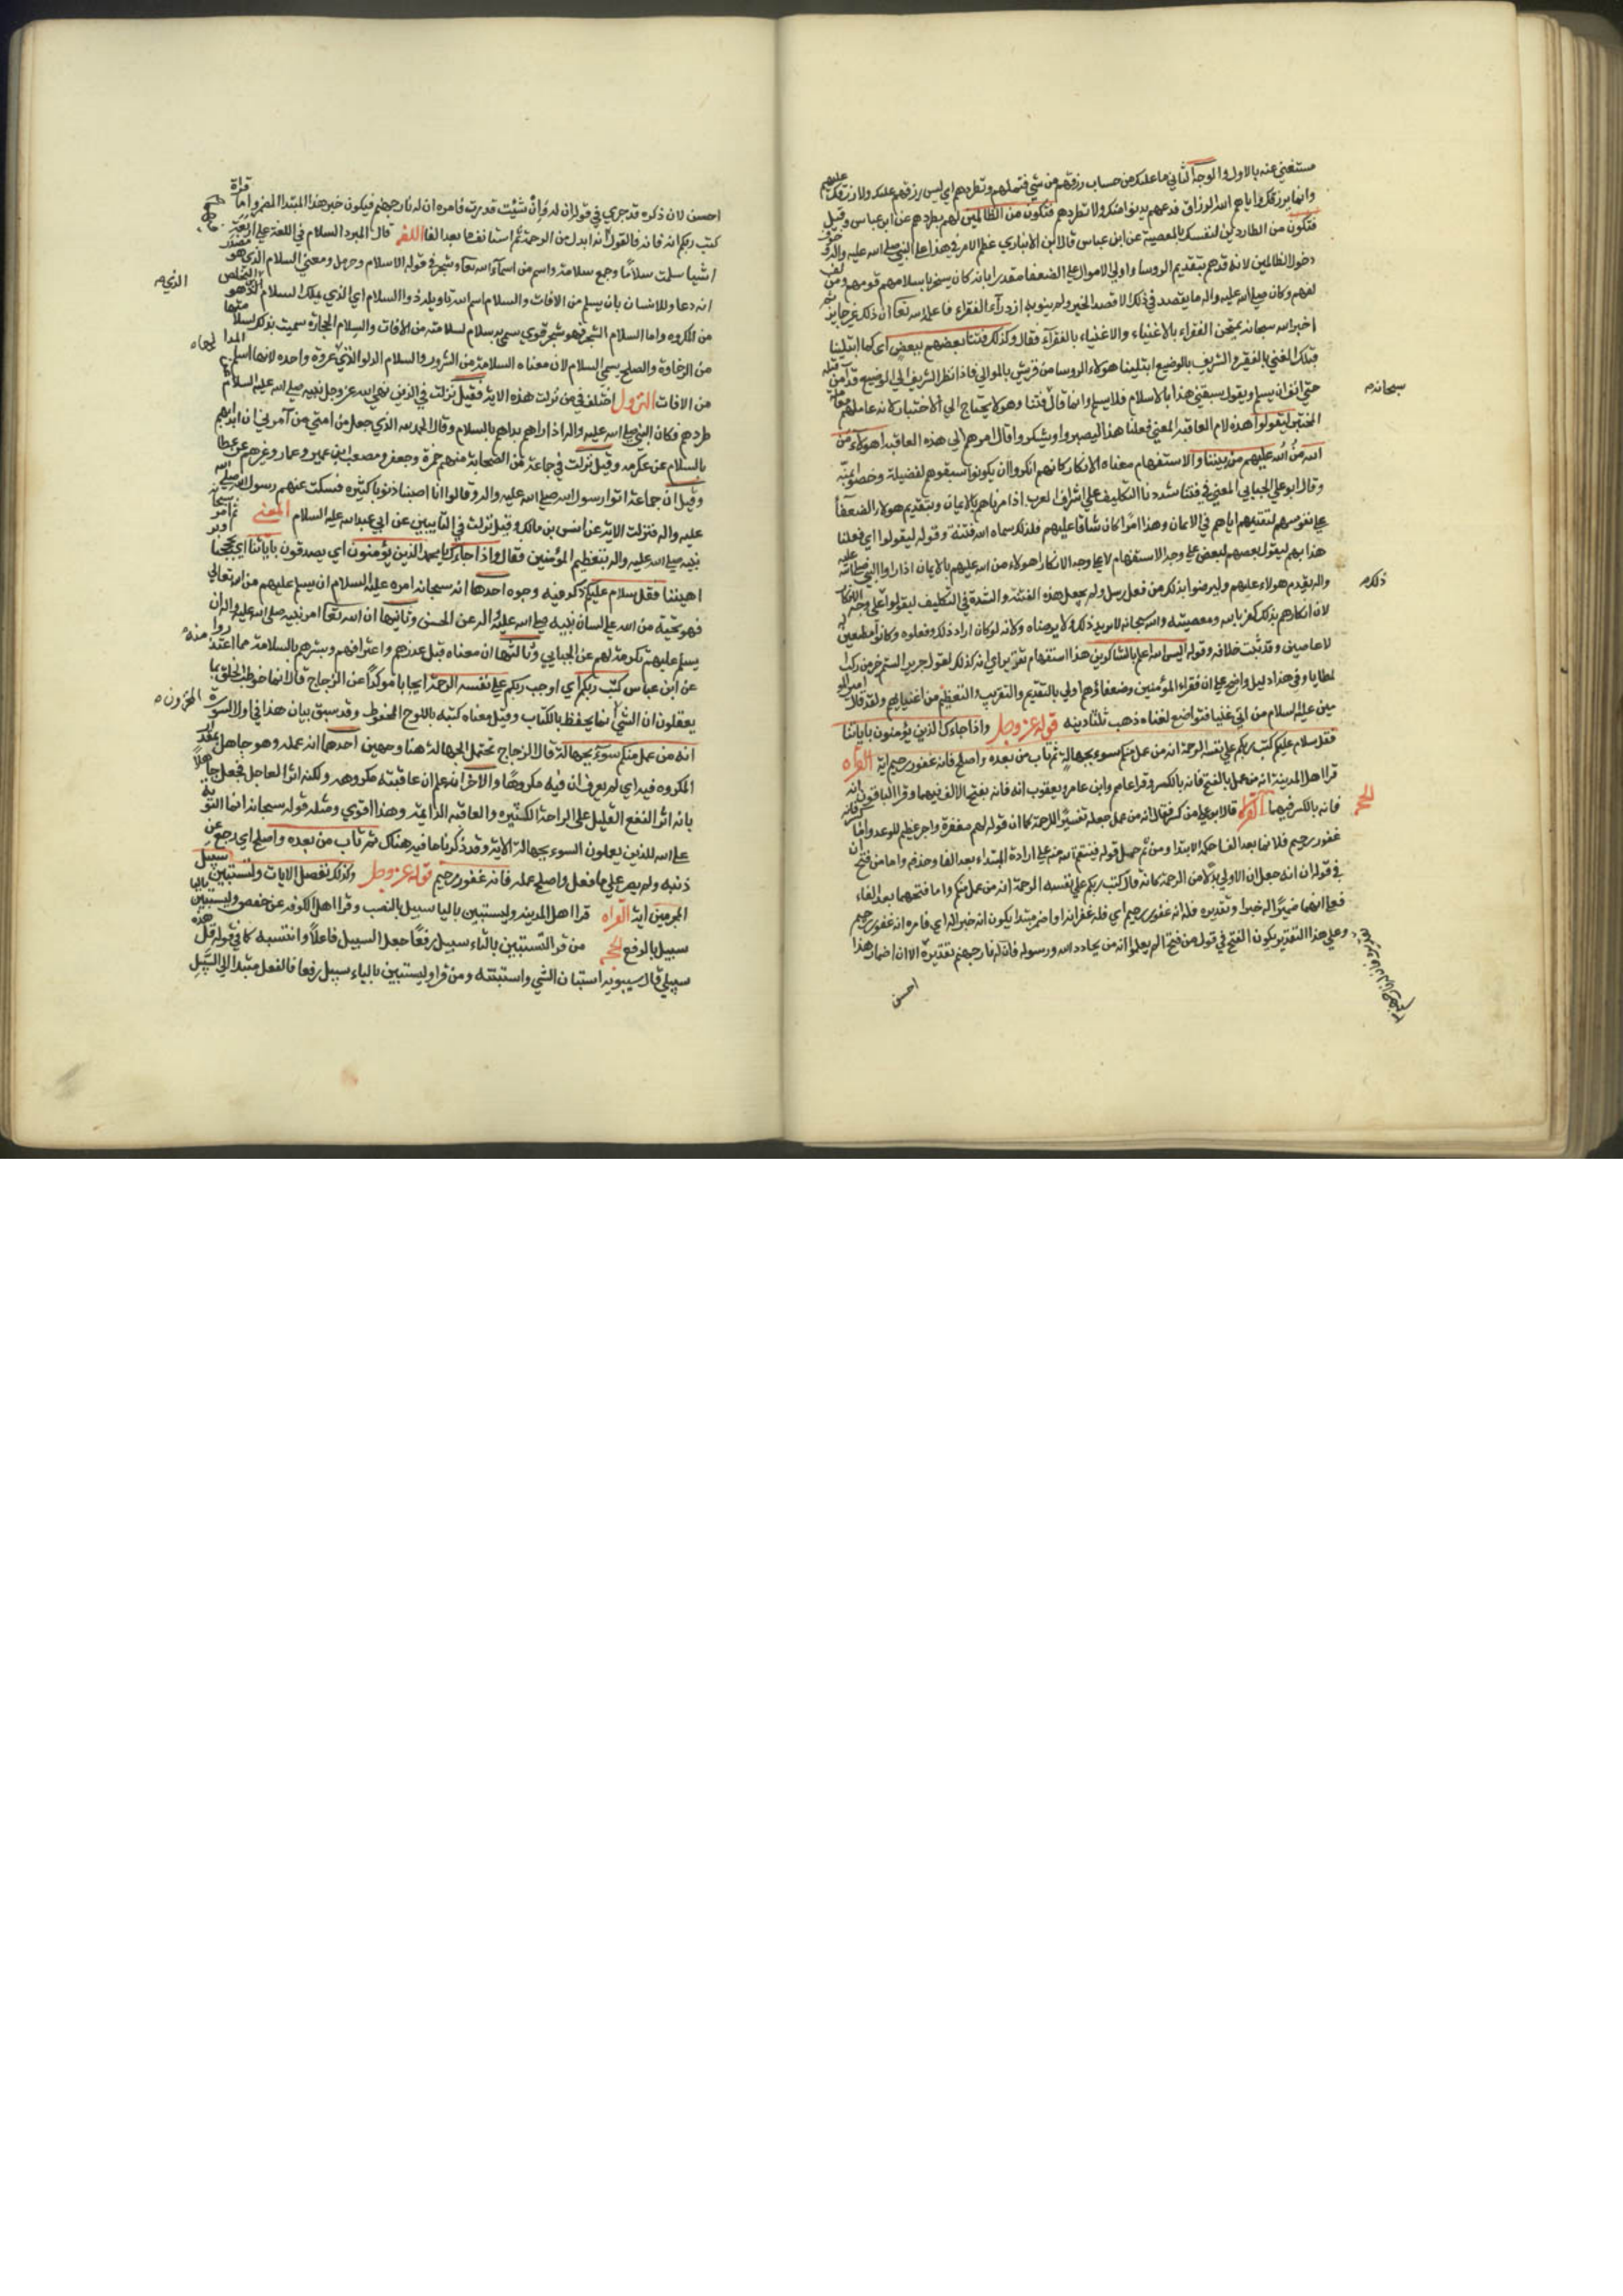 مستغني عنه بالاول والوجه الثاني ما عليك من حساب رزقهم من شي فتملهم وتطردهم اي ليس رزقهم عليك ولا رزقك عليهم
وانما يرزقك واياهم الله الرزاق فدعهم يدنوا منك ولا تطردهم فتكون من الظالمين لهم بطردهم عن ابن عباس وقيل
فتكون من الطاردين لنفسك بالمعصية عن ابن عباس قال ابن الانباري عظم الامر في هذا على النبي صلى الله عليه واله وخوف
دخول الظالمين لانه قد هم بتقديم الروسا واولي الاموال على الضعفا مقدرا بانه كان يستجر باسلامهم قومهم ومن لف
لفهم وكان صلى الله عليه واله ما يقصد في ذلك الا قصد الخير ولم ينو به ازدراء الفقراء فاعلمه الله تعا ان ذلك غير جايز ثم
اخبر الله سبحانه يمتحن الفقراء بالاغنياء والاغنياء بالفقرآء فقال وكذلك فتنا بعضهم ببعض اي كما ابتلينا
قبلك الغني بالفقير والشريف بالوضيع ابتلينا هولاء الروسا من قريش بالموالي فاذا نظر الشريف الي الوضيع قد آمن قبله
سبحانه
حمي انفا ان يسلم ويقول سبقني هذا بالاسلام فلا يسلم وانما قال فتنا وهو لا يحتاج الي الاختبار لانه عاملهم معاملة
المختبر ليقولوا هذه لام العاقبة المعني فعلنا هذا ليصبروا ويشكروا قال امرهم الي هذه العاقبه اهولاء من
الله منّ الله عليهم من بيننا والاستفهام معناه الانكار كانهم انكروا ان يكونوا سبقوهم لفضيلة وخصوا بمنّه
وقال ابو علي الجبايي المعني في فتنا شددنا التكليف علي اشراف العرب اذا مرناهم بالايمان وبتقديم هولاء الضعفا
علي نفوسهم لتقدمهم اياهم في الايمان وهذا امر كان شاقا عليهم فلذلك سماه الله فتنة وقوله ليقولوا اي فعلنا
هذا بهم ليقول بعضهم لبعض علي وجه الاستفهام لا علي وجه الانكار اهولاء من الله عليهم بالايمان اذا راوا النبي صلى الله عليه
ذلك
واله يقدم هولاء عليهم وليرضوا بذلك من فعل رسل ولم يجعل هذه الفتنة والشدة في التكليف ليقولوا علي وجه الانكار
لان انكارهم بذلك كفر بالله ومعصيته والله سبحانه لا يريد ذلك ولا يرضاه ولانه لو كان اراد ذلك وفعلوه كانوا مطيعين له
لا عاصين وقد ثبت خلافه وقوله اليس الله اعلم بالشاكرين هذا استفهام تقرير اي انه كذلك كقول جرير الستم خير من ركب
المطايا وفي هذا دليل واضح علي ان فقراء المؤمنين وضعفاؤهم اولي بالتقديم والتقريب والتعظيم من اغنيايهم ولقد قال امير المو
مين عليه السلام من اتي غنيا فتواضع لغناه ذهب ثلثا دينه قوله عز وجل واذا جاءك الذين يؤمنون باياتنا
فقل سلام عليكم كتب ربكم علي نفسه الرحمة انه من عمل منكم سوء بجهالة ثم تاب من بعده واصلح فانه غفور رحيم اية القراه
قرا اهل المدينة انه من عمل بالفتح فانه بالكسر وقرا عاصم وابن عامر ويعقوب انه فانه بفتح الالف فيهما وقرا الباقون انه
الحجه
فانه بالكسر فيهما قال ابو علي من كسر فقال انه من عمل جعله تفسيرًا للرحمة كما ان قوله لهم مغفرة واجر عظيم للوعد واما كسر فانه
غفور رحيم فلان ما بعد الفا حكمه الابتدا ومن ثم حمل قوله فينتقم الله منه علي ارادة المبتداء بعد الفا وحذفه واما من فتح ان
في قوله ان انه جعل ان الاولي بدلًا من الرحمة كانه قال كتب ربكم علي نفسه الرحمة انه من عمل منكم واما فتحهما بعد الفاء
فعلي انه اضمر له خبرا وتقديره فله انه غفور رحيم اي فله غفرانه او اضمر مبتدا يكون انه خبر له اي فامره انه غفور رحيم
وعلي هذا التقدير يكون الفتح في قول من فتح الم يعلموا انه من يحادد الله ورسوله فان له نار جهنم تقديره الا ان اضمار هذا
احسن
احسن لان ذكره قد جري في قوله ان له وان شئت قدرت فامره ان له نار جهنم فيكون خبر هذا المبتدا المضمر واما قراة
كتب ربكم انه فانه فالقول انه ابدل من الرحمة ثم استانف ما بعد الفا اللغه قال المبرد السلام في اللغة علي اربعة
اشيا سلمت سلامًا وجمع سلامة واسم من اسماء الله تعا وشجر في قوله الا سلام وحرمل ومعني السلام الذي هو مصدر
الذي
انه دعا للانسان بان يسلم من الافات والسلام اسم الله تاويله ذو السلام اي الذي يملك السلام الذي هو التخلص
من المكروه واما السلام الشجر فهو شجر قوي سمي به سلام لسلامته من الافات والسلام الحجارة سميت بذلك لسلامتها
من الرخاوة والصلح يسمي السلام لان معناه السلامة من الشر والسلام الدلو الذي عروة واحده لانها اسلم
من الافات النزول اختلف في من نزلت هذه الاية فقيل نزلت في الذين نهي الله عز وجل نبيه صلى الله عليه السلام
طردهم فكان النبي صلى الله عليه واله اذا راهم بداهم بالسلام وقال الحمد لله الذي جعل من امتي من آمرني ان ابداهم
بالسلام عن عكرمه وقيل نزلت في جماعة من الصحابة منهم حمزة وجعفر ومصعب ابن عمير وعمار وغيرهم عن عطا
وقيل ان جماعة اتوا رسول الله صلى الله عليه واله وقالوا انا اصبنا ذنوبا كثيره فسكت عنهم رسول الله صلى الله
عليه واله فنزلت الاية عن انس بن مالك وقيل نزلت في التايبين عن ابي عبد الله عليه السلام المعني ثم امر سبحانه
نبيه صلى الله عليه واله بتعظيم المؤمنين فقال واذا جاءك يا محمد الذين يؤمنون اي يصدقون باياتنا اي بحججنا
اهيننا فقل سلام عليكم ذكر فيه وجوه احدها انه سبحانه امره عليه السلام ان يسلم عليهم من الله تعالي
فهو تحية من الله علي لسان نبيه صلى الله عليه واله عن الحسن وثانيها ان الله تعا امر نبيه صلى الله عليه واله ان
يسلم عليهم تكرمة لهم عن الجبايي وثالثها ان معناه قبل عذرهم واعترافهم وبشرهم بالسلامة مما اعتذروا منه
عن ابن عباس كتب ربكم اي اوجب ربكم علي نفسه الرحمة ايجابا موكدًا عن الزجاج قال انما خوطب الخلق بما
يعقلون ان الشيئ انما يحفظ بالكتاب وقيل معناه كتبه باللوح المحفوظ وقد سبق بيان هذا في اول السورة
انه من عمل منكم سوء بجهالة قال الزجاج تحتمل الجهالة هنا وجهين احدهما انه عمله وهو جاهل بمقدار
المكروه فيه اي لم يعرف ان فيه مكروهًا والاخر انه علم ان عاقبته مكروهه ولكنه اثر العاجل فجعل جاهلًا
بانه اثر النفع القليل علي الراحة الكثيره والعاقبه الدايمة وهذا اقوي ومثله قوله سبحانه انما التوبة
علي الله للذين يعملون السوء بجهالة الاية وقد ذكرنا ما فيه هناك ثم تاب من بعده واصلح اي رجع عن
ذنبه ولم يصر علي ما فعل واصلح عمله فانه غفور رحيم قوله عز وجل وكذلك نفصل الايات ولتستبين سبيل
المجرمين اية القراه قرا اهل المدينه وليستبين باليا سبيل بالنصب وقرا اهل الكوفه عن حفص وليستبين باليا
سبيل بالرفع الحجه من قرا لتستبين بالتاء سبيل رفعًا جعل السبيل فاعلًا وانثه كما في قوله قل هذه
سبيلي قال سيبويه استبان الشي واستبنته ومن قرا وليستبين بالياء سبيل رفعا فالفعل مسند الي السبيل